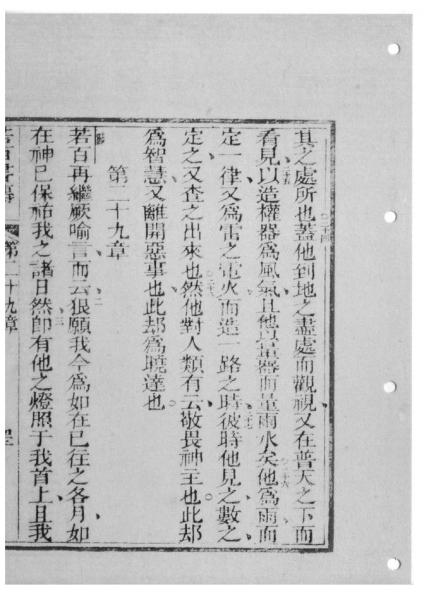 其之處所也蓋他到地之盡處而觀視又在普天之下而
看見以造權器爲風氣且他以量器而量雨水矣他爲雨而
定一律又爲雷之電火而造一路之時彼時他見之數之
定之又查之出來也然他對人類有云敬畏神主也此却
爲智慧又離開惡事也此却爲曉達也
第二十九章
若百再繼厥喻言而云狠願我今爲如在已往之各月如
在神已保祐我之諸日然卽有他之燈照于我首上且我
第二十九章